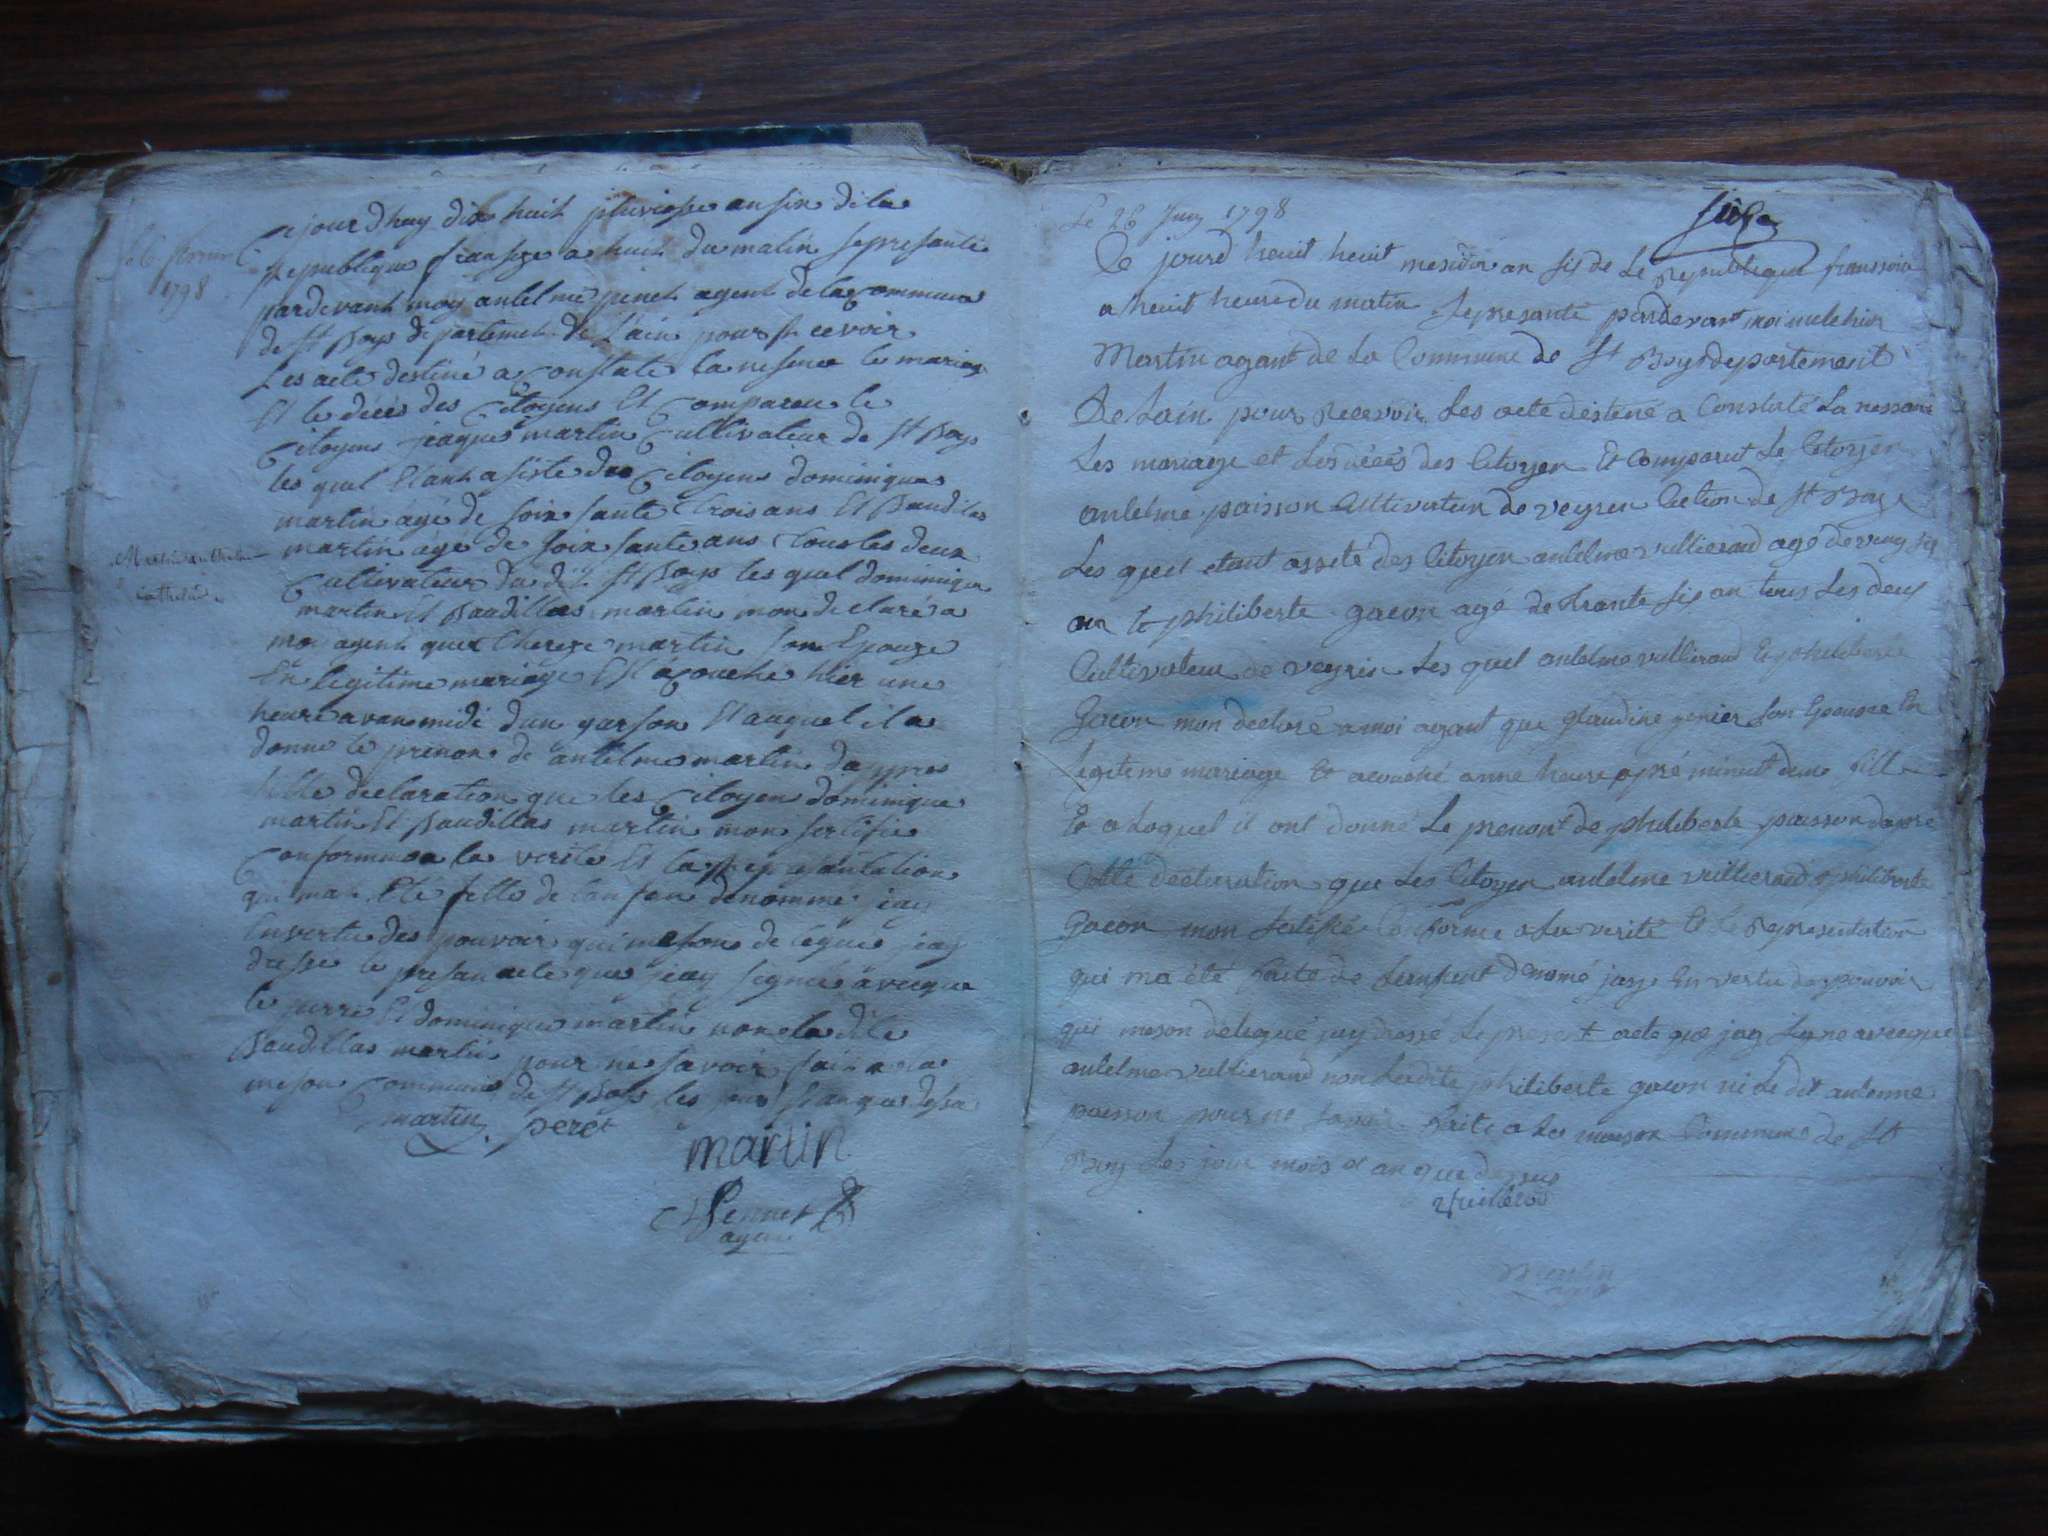 1798
Ce jour dhuy dix huit pluviose an six de la
republique franse a huit du matin sepresante
pardevant moy antelme penet agent de la Commune
de St Boys departement de Lain pour recevoir
Les acte destiné a Constate la nesence le mariage
Et le décés des Citoyens Et Comparu le
Citoyens jaques martin Cultivateur de St Boys
les quel Etant asiste des Citoyens dominique
martin agé de soixsante trois ans Et Baudillas
martin agé de soixsante ans tous les deux
Cultivateur du dit St Boys les quel dominique
martin Et Baudillas martin mon declaré a
moy agent que therese martin son Epouze
En legitime mariage Et acouche hier une
heure avan midi dun garson Et auquel il a
donne le prenon de antelme martin dapres
sette declaration que les Citoyen dominique
martin Et Baudillas martin mon sertifie
Conforme a la verite Et la representation
qui ma Eté fette de lanfan denommé jay
En vertu des pouvoir qui meson delegué jay
dresse le presan acte que jay signé avecque
le perre Et dominique martin non le dite
Baudillas martin pour ne savoir fait a la
meson Commune de St Boys les jour an que desu
martin peret
martin
Pennet
agent
Le 26 Juin 1798
Ce jourd heuit heuit mesidor an six de Le Republique franssoise
a heuit heure du matin sepresanté pardevant moi melchior
Martin agant de La Commune de St Boys departement
De Lain pour Recevoir Les acte destiné a Constaté La nessance
Les mariage et Les décés des Citoyen Et Comparut Le Citoyen
antelme paisson Cultivateur de veyren section de St Boys
Les quel etant assité des Citoyen antelme vullieraud agé de ving six
an Et philiberte gacon agé de Trante six an tous Les deux
Cultivateur de veyrin Les quel antelme vullieraud Et philiberte
Gacon mon declaré a moi agant que Claudine genier son Epouse En
Legiteme mariage Et acouché anne heure apré minuit dune fille
Et a Laquel il ont donné Le prenont de philiberte paisson dapré
Cette declaration que Les Citoyen antelme vullieraud philiberte
Gacon mon sertifié Conforme a La verité Et Le Representation
qui ma été faite de Lenfent denomé jay En vertu des pouvoir
qui meson délegué jay dressé Le present acte que jay signe avecque
antelme vullieraud non Ladite philiberte gacon ni Le dit antelme
paisson pour ne savoir Faite a La maison Commune de St
Boys Les jour mois et an que dessus
Martin